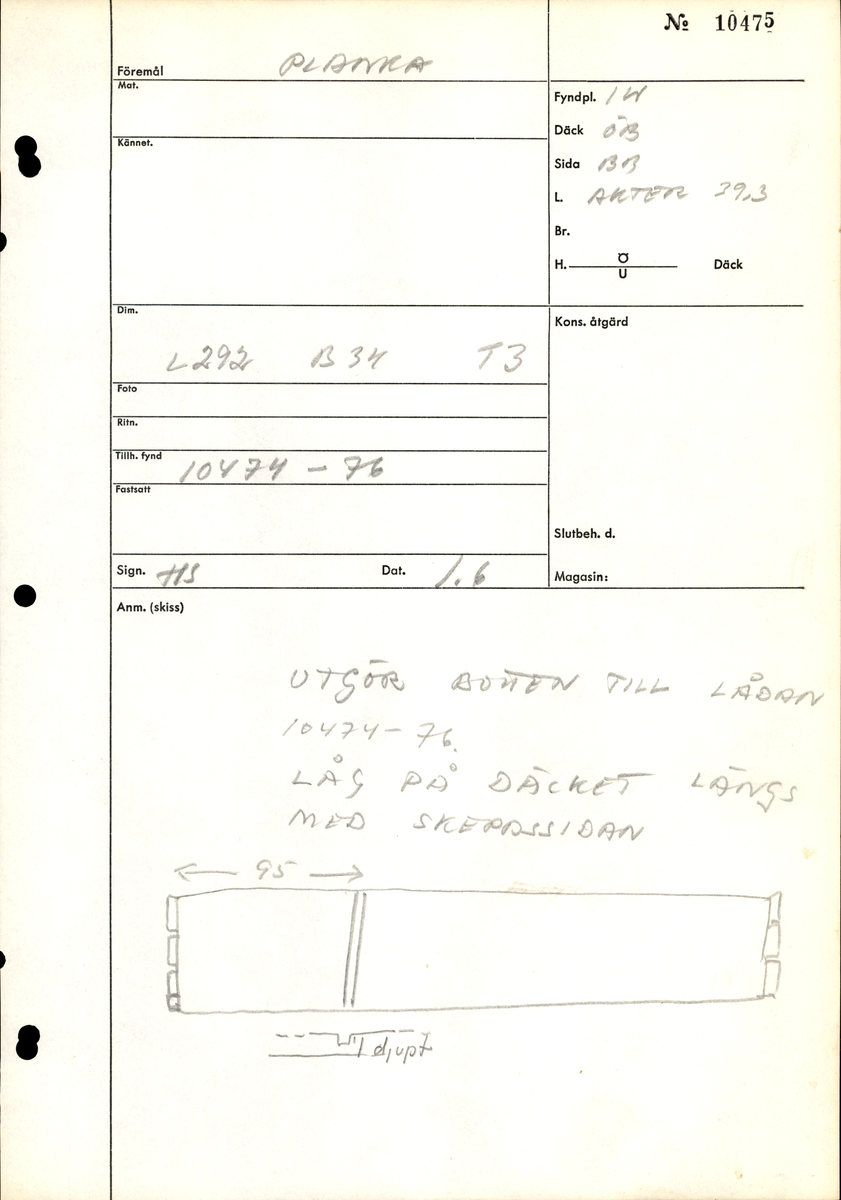 № 10475
Föremål PLANKA
Mat.
Kännet.
Fyndpl. 1W
Däck ÖB
Sida BB
L. AKTER 39,3
Br.
H. Ö U Däck
Dim.
L292 B34 T3
Kons. åtgärd
Foto
Ritn.
Tillh. fynd 10474 – 76
Fastsatt
Slutbeh. d.
Sign. HS Dat. 1.6
Magasin:
Anm. (skiss)
UTGÖR BOTTEN TILL LÅDAN
10474 – 76.
LÅG PÅ DÄCKET LÄNGS
MED SKEPPSSIDAN
95
1 djupt